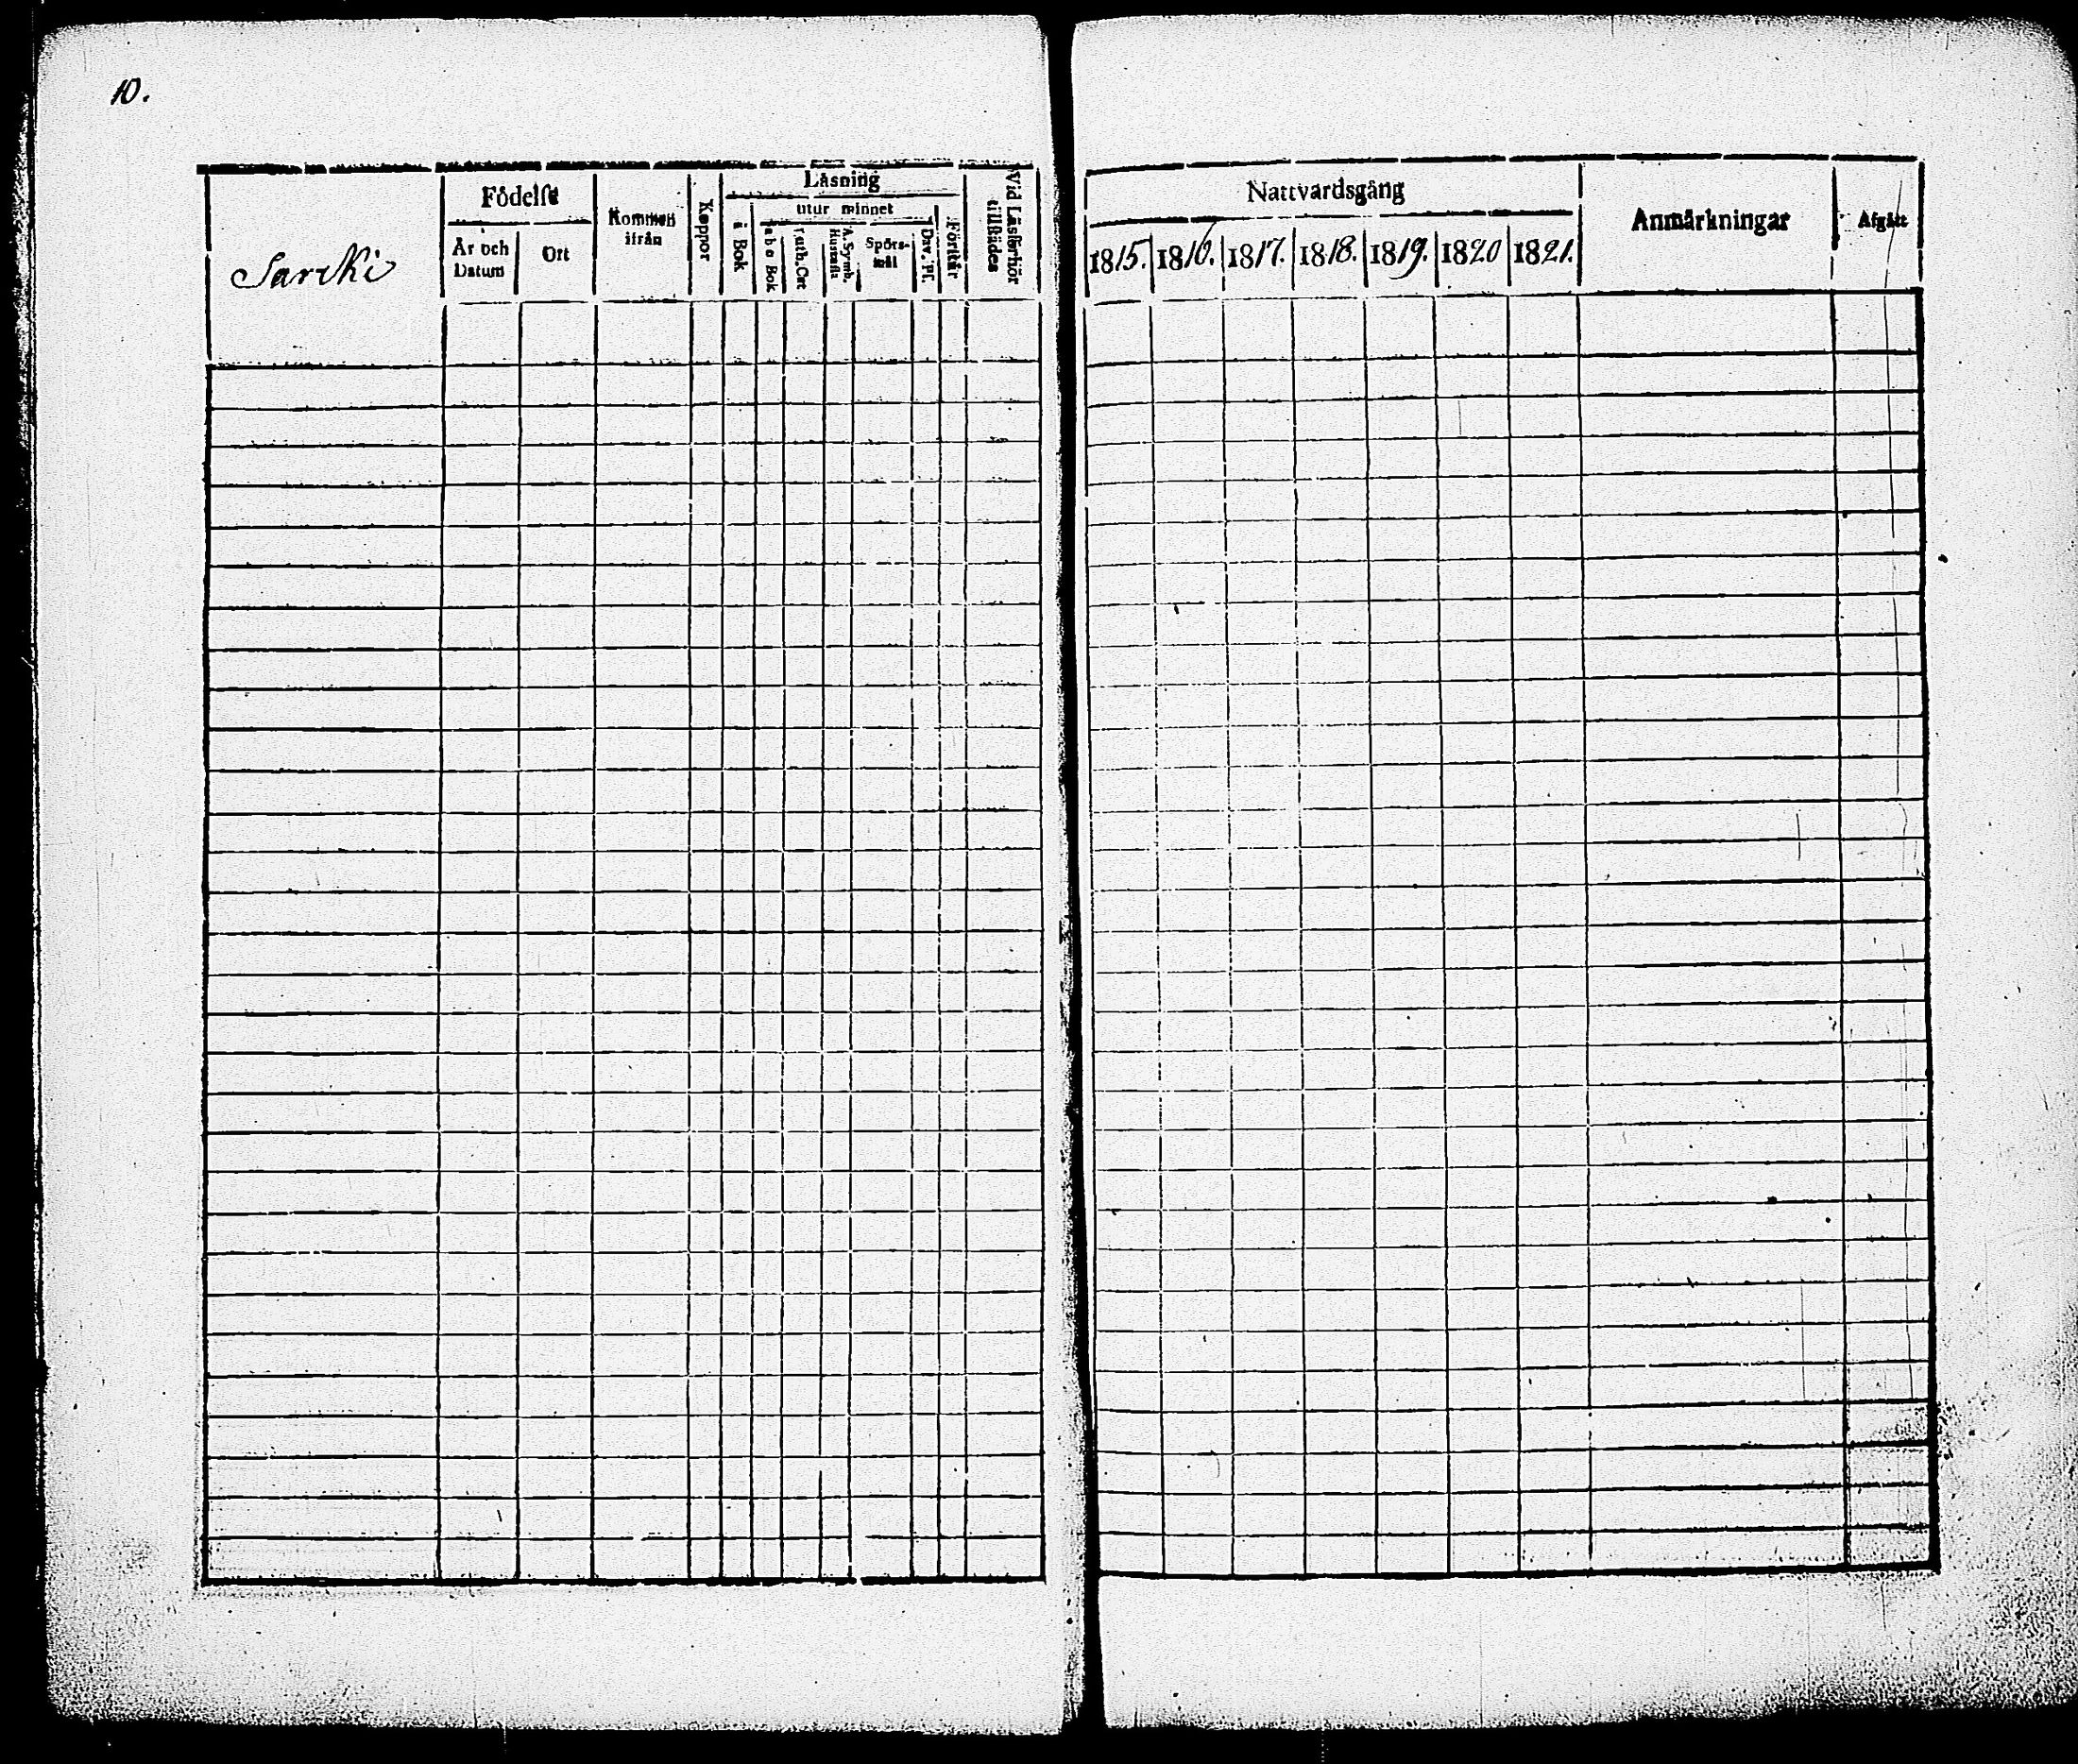 10.
Sarcki
Födelse
År och Datum
Ort
Kommen ifrån
Koppor
Läsning
i Bok
utur minnet
a b c Bok
Luth. Cat
A. Symb. Hustafla
Spörs-mål
Dav. Ps.
Förstår
Vid Läsförhör tillstädes
Nattvardsgång
1815. 1816. 1817. 1818. 1819. 1820 1821.
Anmärkningar
Afgått